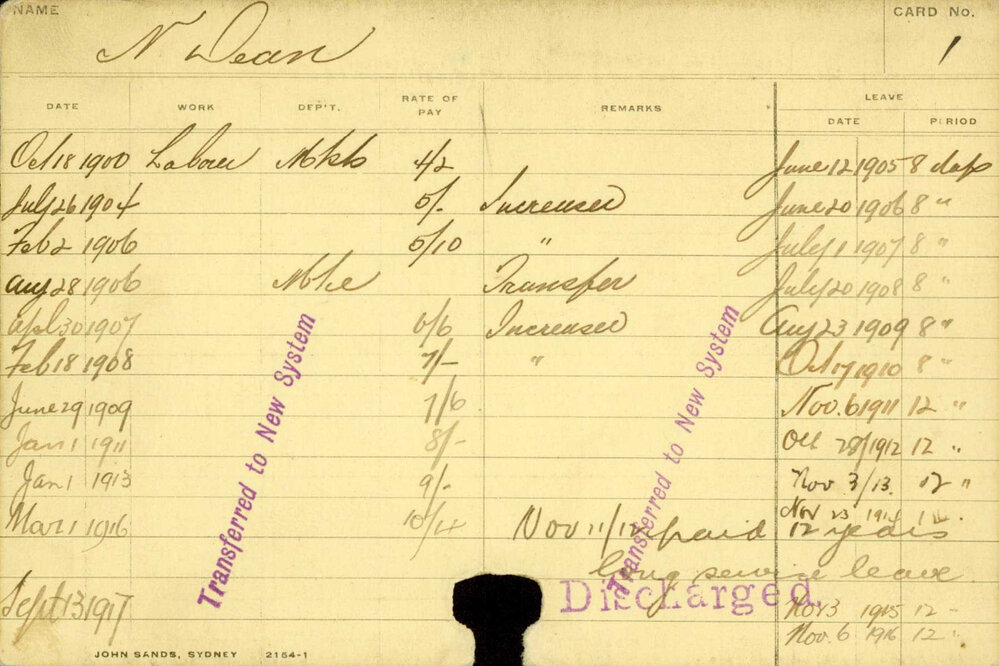 NAME CARD No.
N Dean 1
LEAVE
DATE WORK DEP'T. RATE OF PAY REMARKS DATE PERIOD
Oct 18 1900 Labour 4/2 June 12 1905 8 days
July 26 1904 5/- Increased June 20 1906 8 "
Feb 2 1906 5/10 " July 1 1907 8 "
Aug 28 1906 Transfer July 20 1908 8 "
Apl 30 1907 6/6 Increased Aug 23 1909 8 "
Feb 18 1908 7/- " Oct 17 1910 8 "
June 29 1909 7/6 Nov. 6 1911 12 "
Jan 1 1911 8/- Oct 28/1912 12 "
Jan 1 1913 9/- Nov 3/13. 12 "
Mar 1 1916 10/4 Nov 23 1914
Nov 11/12 paid 12 years
long service leave
Sept 13 1917 Discharged. Nov 3 1915 12 -
Nov. 6 1916 12 "
Transferred to New System
Transferred to New System
JOHN SANDS, SYDNEY 2154-1